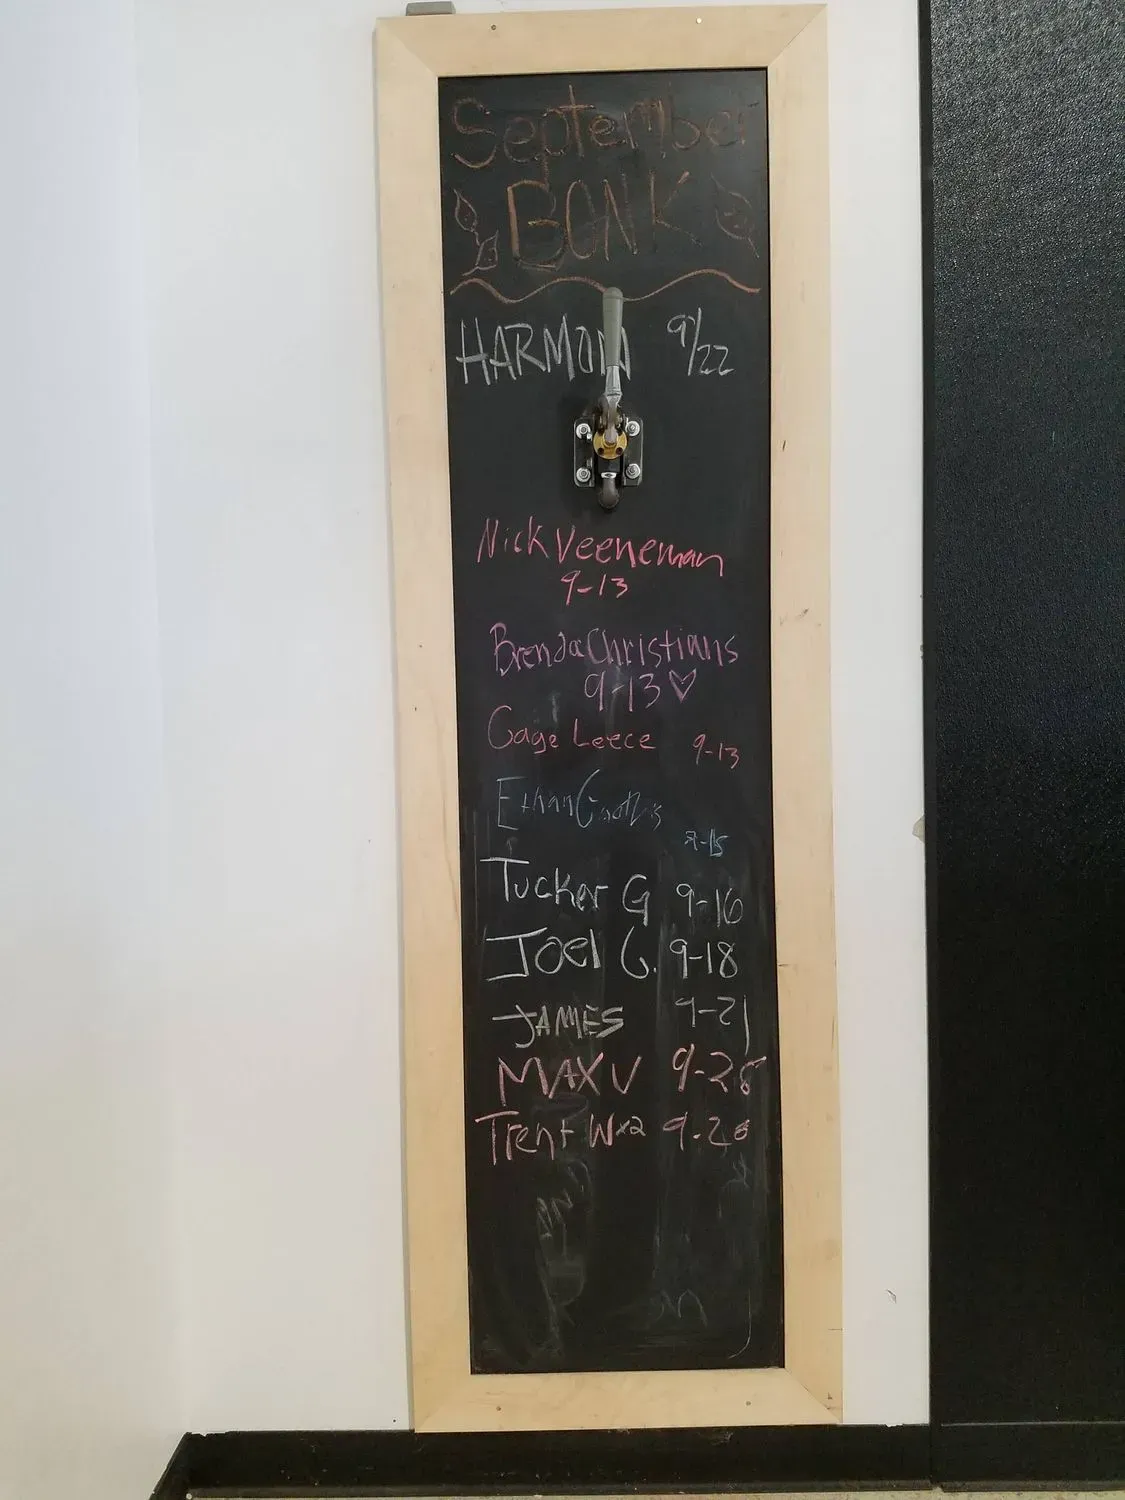 September
BONK
HARMON 9/22
Nick Veeneman
9-13
Brenda Christians
9-13 ♡
Gage Leece 9-13
Ethan
9-15
Tucker G 9-16
Joel G. 9-18
JAMES 9-21
MAX V 9-28
Trent W x2 9-28